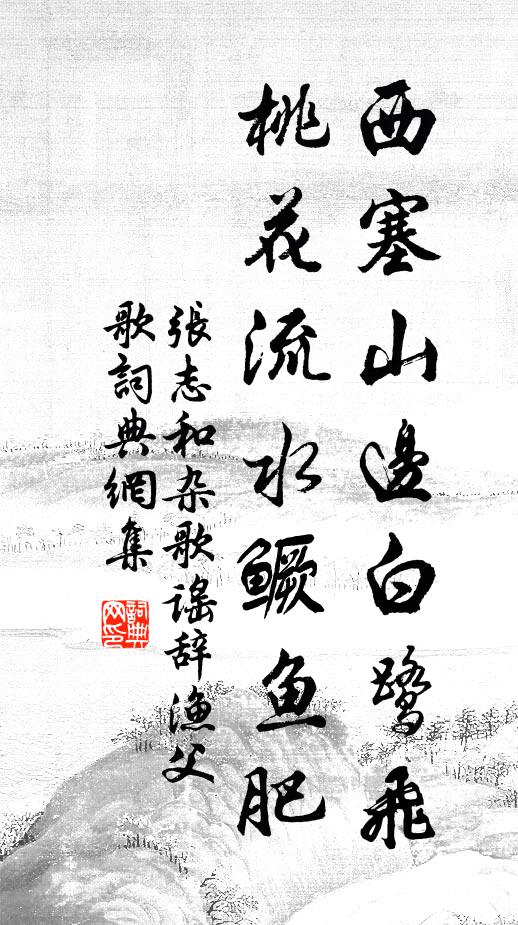 西塞山邊白鷺飛
桃花流水鳜鱼肥
張志和杂歌谣辞漁父
歌詞典網集
詞典网印